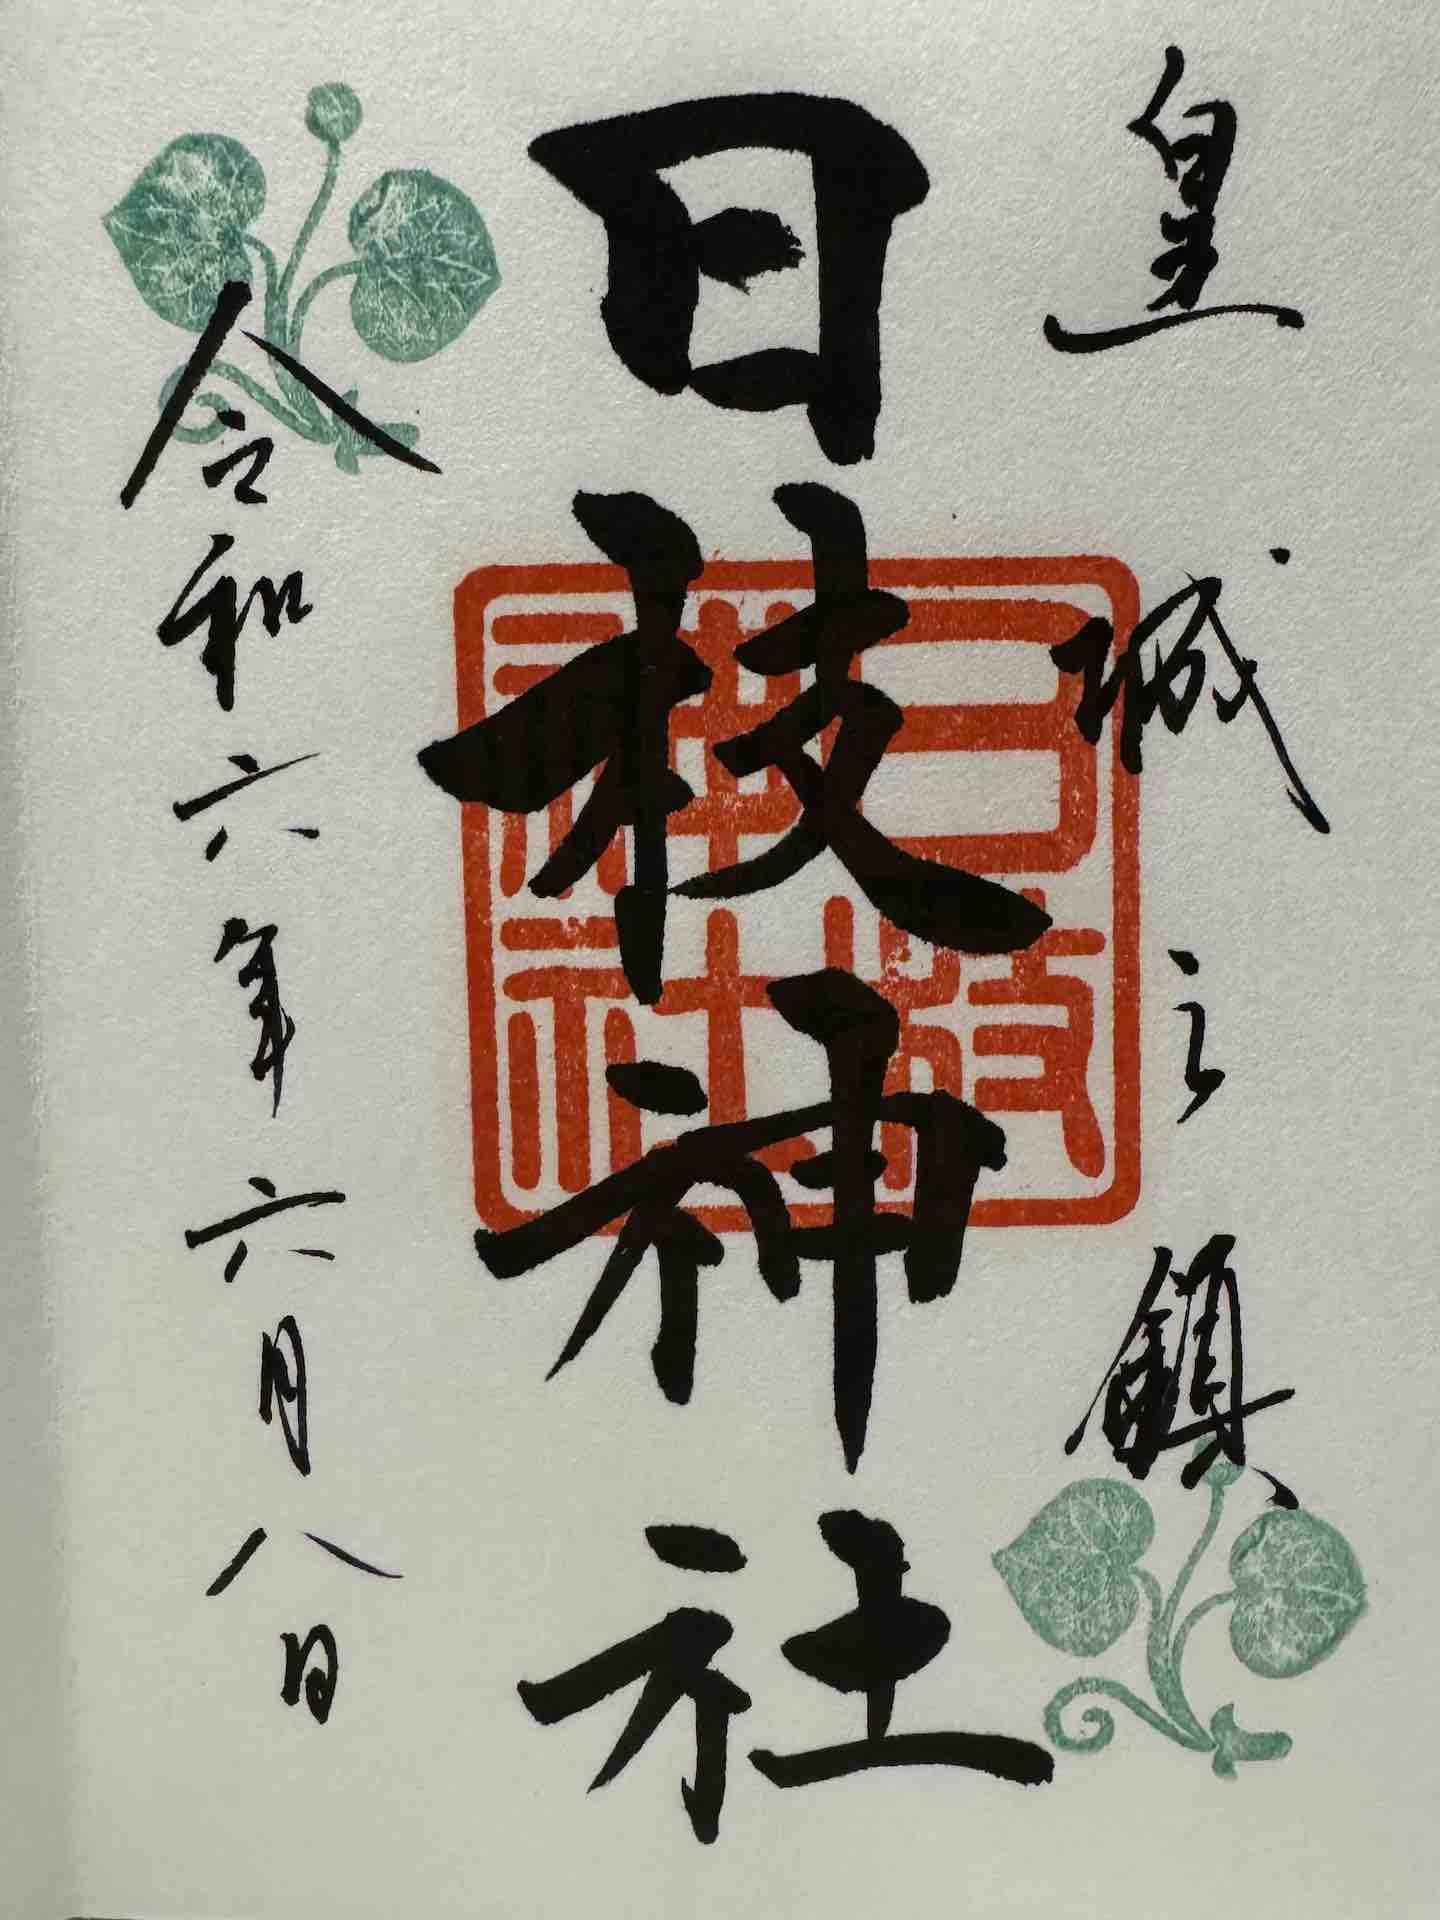 皇城之鎮
日枝神社
日枝神社
令和六年六月八日